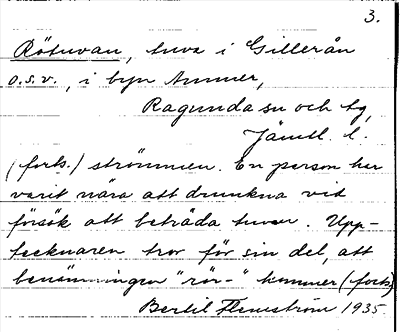 3.
Rötuvan, tuva i Gillerån
o.s.v., i byn Ammer,
Ragunda sn och tg,
Jämtl. l.
(forts.) strömmen. En person har
varit nära att drunkna vid
försök att beträda tuvan. Upp-
tecknaren tror för sin del, att
benämningen "rör-" kommer (forts)
Bertil Flemström 1935.